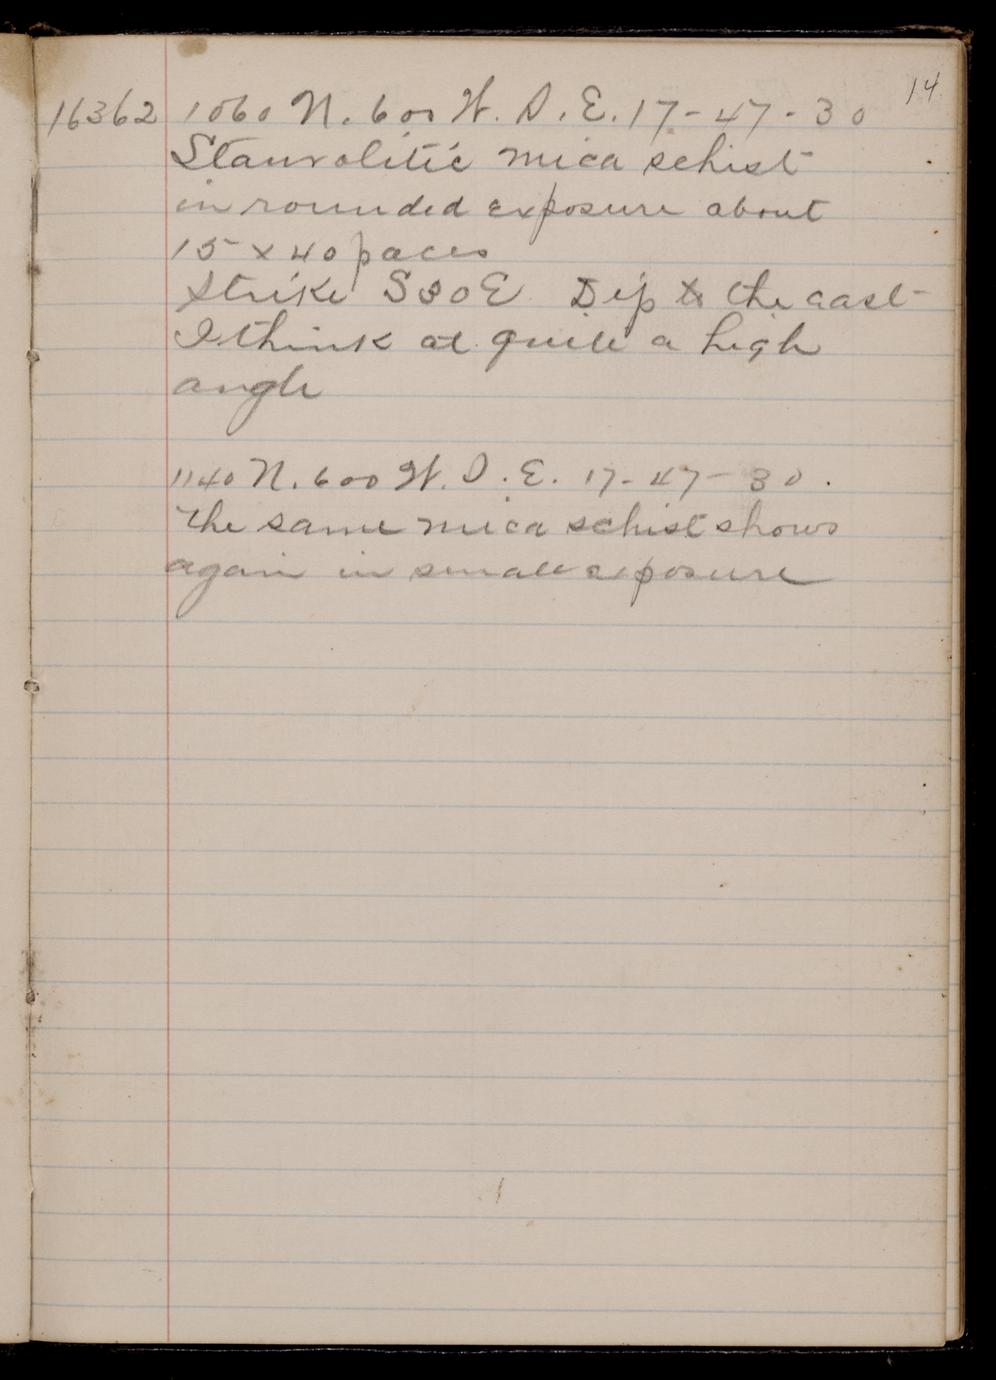 14
16362 1060 N. 600 W. S. E. 17-47-30
Staurolitic mica schist
in rounded exposure about
15 x 40 paces
Strike S30E Dip to the east
I think at quite a high
angle
1140 N. 600 W. S. E. 17-47-30.
The same mica schist shows
again in small exposure